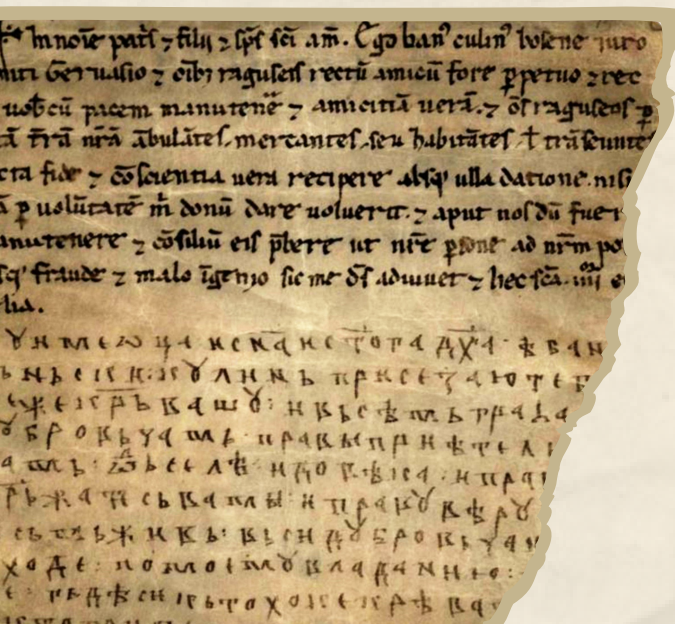 In noie pat̄s ⁊ filii ⁊ sp̄s sc̄i am̄. Ego ban' culin' bosene iuro
Geruasio ⁊ oib; raguseis rectū amicū fore ꝑpetuo ⁊ rec
uob̄ cū pacem manutene ⁊ amicitiā uerā. ⁊ os̄ raguseos ꝑ
tr̄ā nr̄ā ābulātes, mercantes, seu habitātes ł trāseuntes
cta fide ⁊ cōscientia uera recipere absq' ulla datione. nisi
ꝑ uolūtatē m̄ donū dare uoluerit. ⁊ aput nos dū fuer
anutenere ⁊ cōsiliū eis p̄bere ut nr̄e ꝑsone ad nr̄m po
sq' fraude ⁊ malo īgenio sic me ds̄ adiuuet ⁊ hec sc̄a. iiii
lia.
У име ѡца и сн҃а и ст҃ога дх҃а · ѣ бан
ньски: кулинь присезаю теб
еже крьвашу: и вьсѣмь граћа
убровьчамь правы приѣтел
амь ѡдь селѣ и довѣка и прав
рьжати сь вами и праву вѣру
сьмь живь: вьси дубровьчан
ходе: по моему владанию:
гьдѣ си кьто хоке крѣва